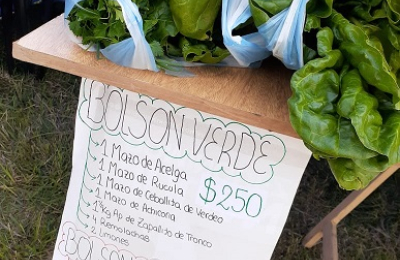 BOLSON VERDE
1 Mazo de Acelga
1 Mazo de Rucula
1 Mazo de Ceballita de Verdeo
1 Mazo de Achicoria
1 ½ Kg Ap de Zapallito de Tronco
4 Remolachas
2 Limones
$250
BOLSON